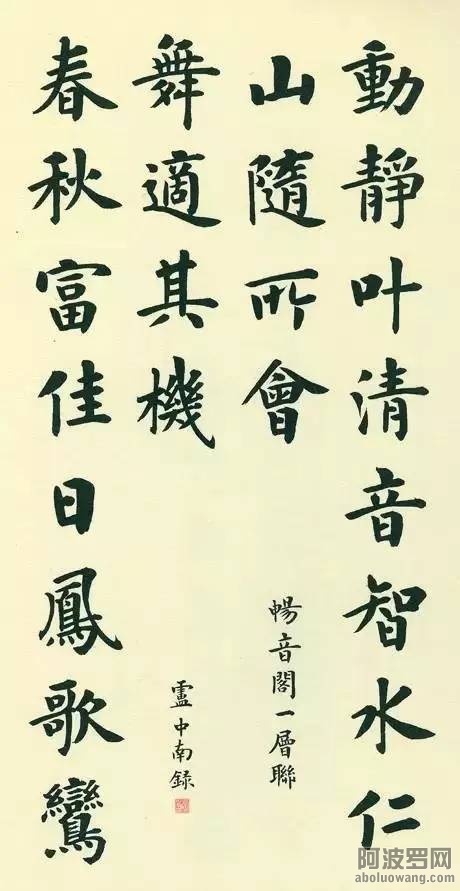 動靜叶清音智水仁
山隨所會
暢音閣一層聯
春秋富佳日鳳歌鸞
舞適其機
盧中南録
阿波罗网
aboluowang.com